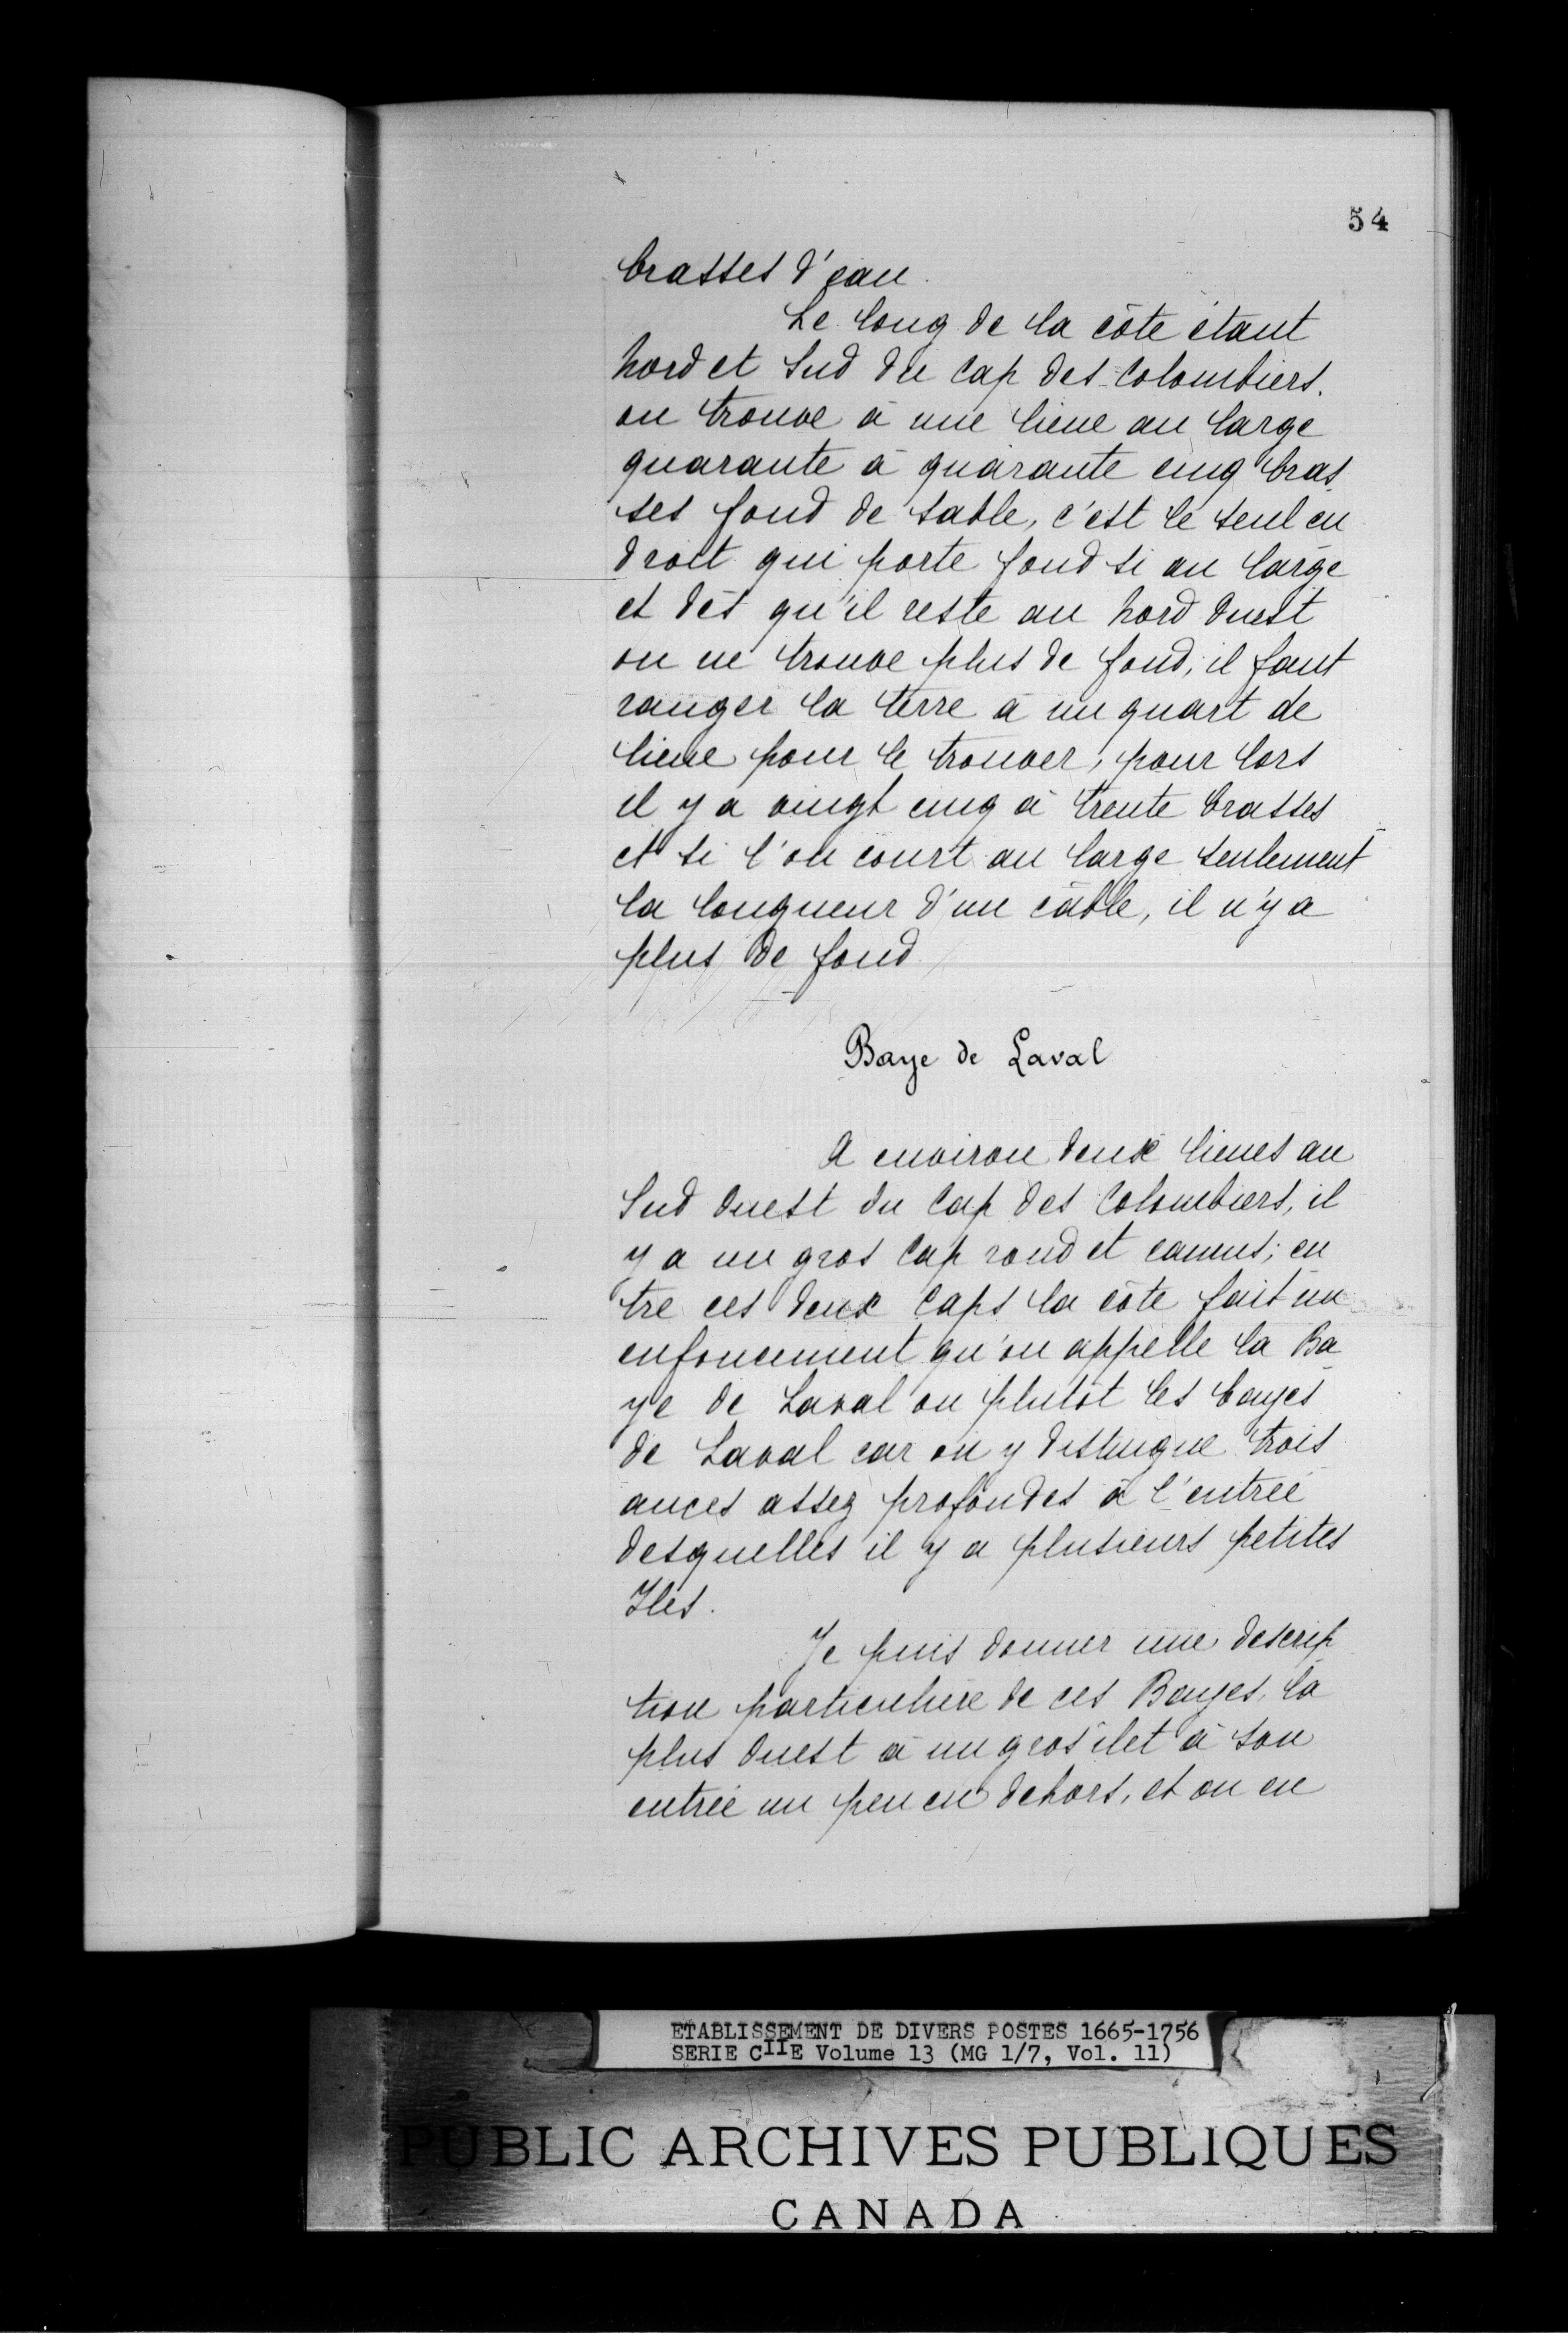 54
brasses d'eau.
Le long de la côte étant
Nord et Sud du Cap des Colombiers.
on trouve à une lieue au large
quarante à quarante cinq bras
ses fond de sable, c'est le seul en
droit qui porte fond si au large
et dès qu'il reste au Nord Ouest
on ne trouve plus de fond, il faut
ranger la terre à un quart de
lieue pour le trouver, pour lors
il y a vingt cinq à trente brasses
et si l'on court au large seulement
la longueur d'un câble, il n'y a
plus de fond
Baye de Laval
A environ deux lieues au
Sud Ouest du Cap des Colombiers, il
y a un gros Cap rond et camus; en
tre ces deux Caps la côte fait un
enfoncement qu'on appelle la Ba
ye de Laval ou plutôt les bayes
de Laval car on y distingue trois
ances assez profondes à l'entrée
desquelles il y a plusieurs petites
Iles.
Je puis donner une descrip
tion particulière de ces Bayes, la
plus Ouest à un gros ilet à son
entrée un peu en dehors, et on en
ETABLISSEMENT DE DIVERS POSTES 1665-1756
SERIE CIIE Volume 13 (MG 1/7, Vol. 11)
PUBLIC ARCHIVES PUBLIQUES
CANADA